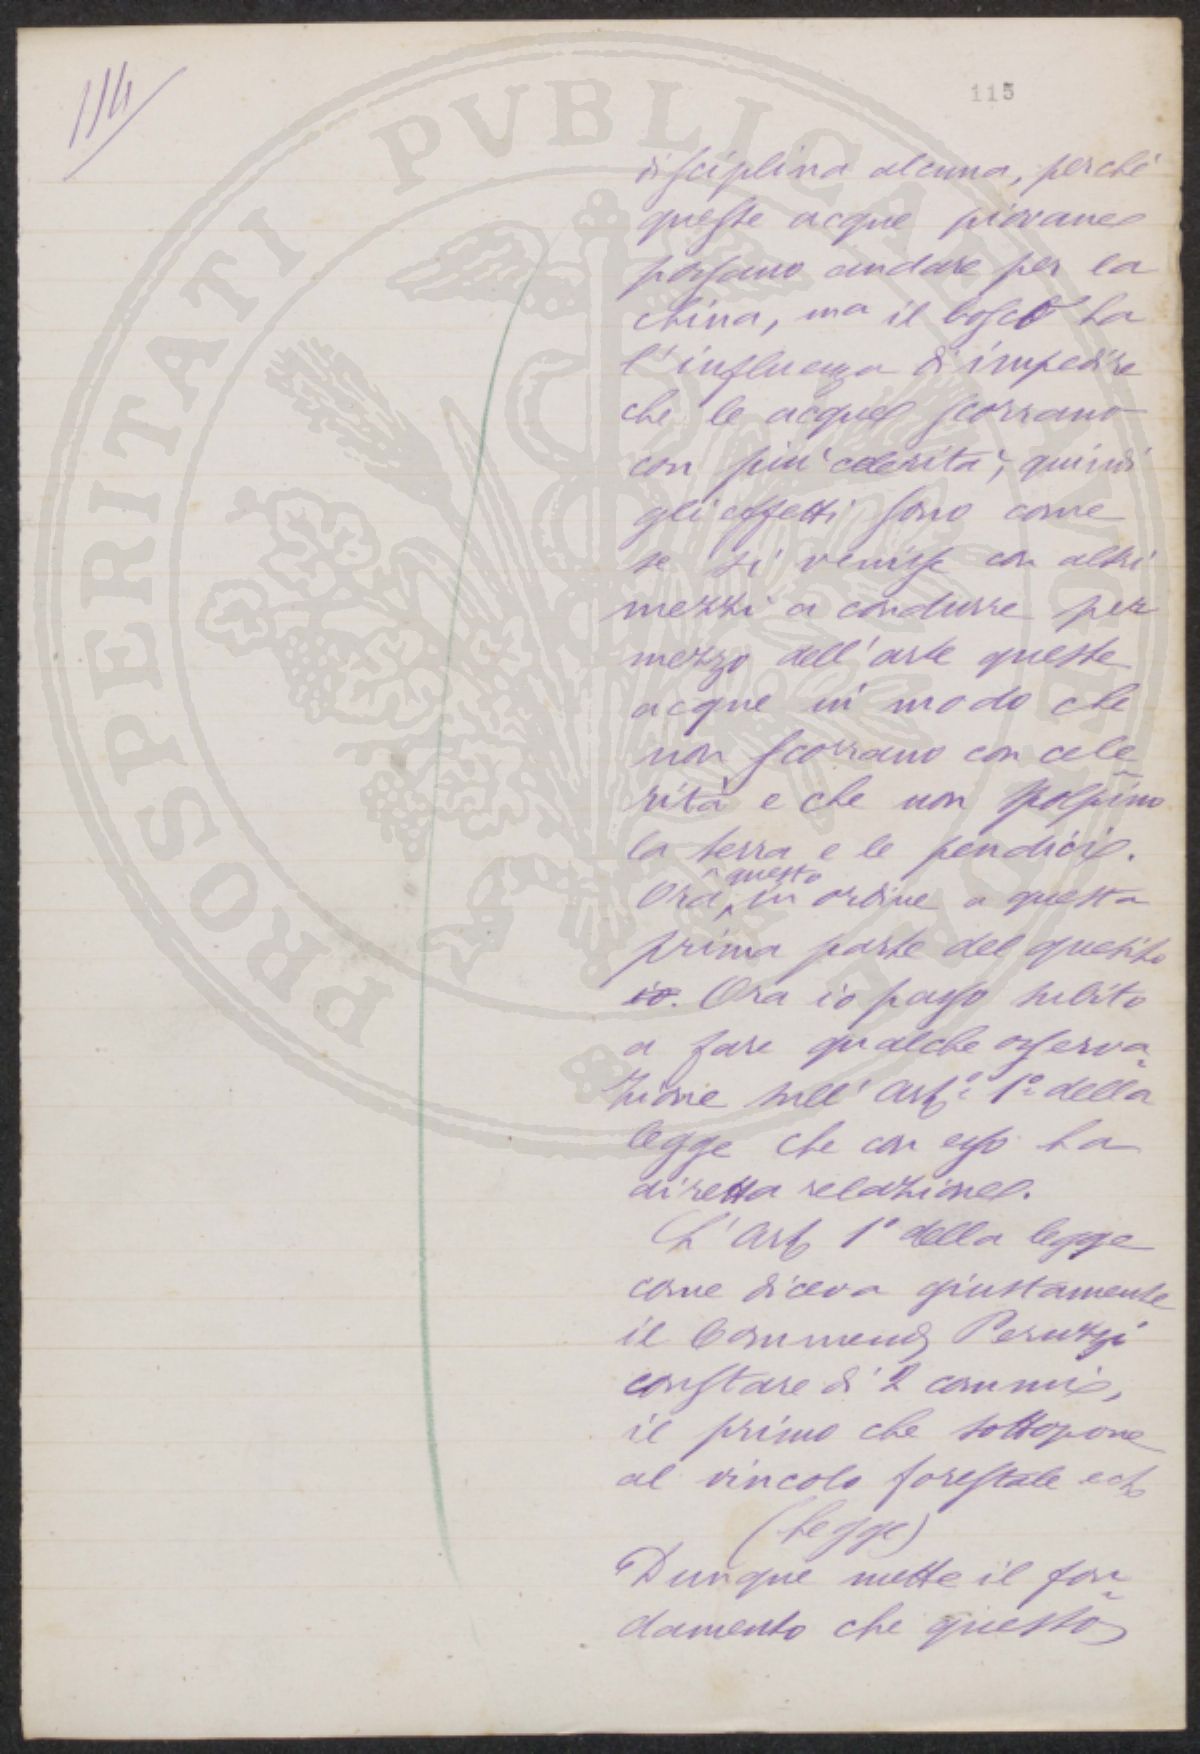 114
115
disciplina alcuna, perché
queste acque piovane
possano andare per la
china, ma il bosco ha
l'influenza di impedire
che le acque scorrano
con più celerità; quindi
gli effetti sono come
se si venisse con altri
mezzi a condurre per
mezzo dell'arte queste
acque in modo che
non scorrano con cele
rità e che non spolpino
la terra e le pendici.
questo
Ora, in ordine a questa
prima parte del quesito
io. Ora io passo subito
a fare qualche osserva
zione sull' Art.º 1º della
legge che con esso ha
diretta relazione.
L'Art. 1º della legge
come diceva giustamente
il Commend. Peruzzi
constare di 2 commi,
il primo che sottopone
al vincolo forestale ect.
(Legge)
Dunque mette il fon
damento che questo
PROSPERITATI PVBLICAE AVGENDAE